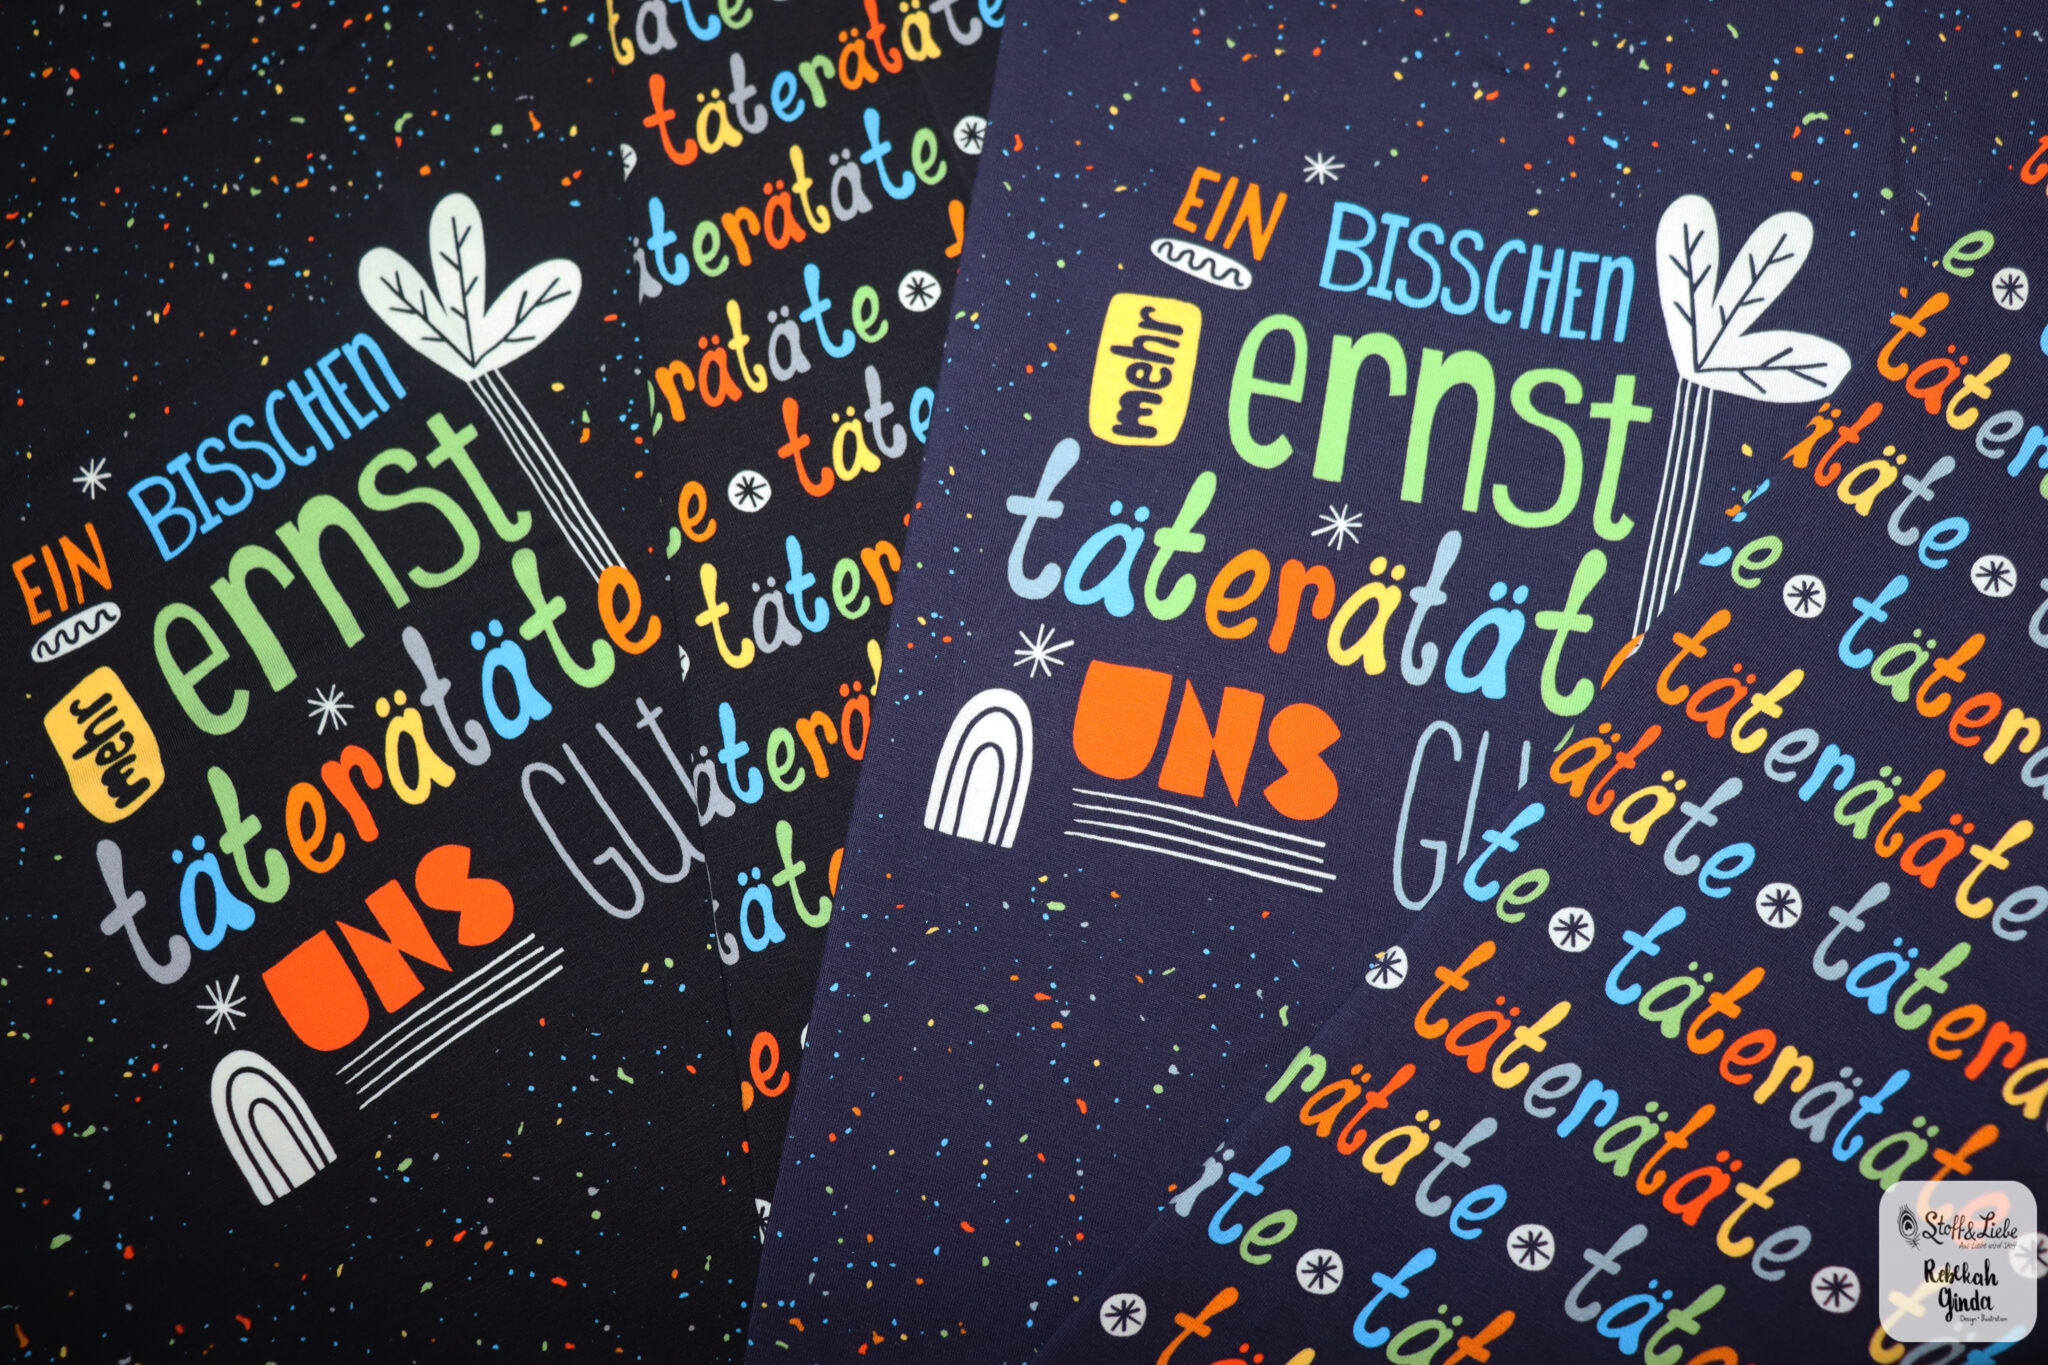 EIN BISSCHEN
mehr ernst
täterätäte
UNS GUT
täterätäte
täterätäte
terätäte
erätäte
täte
e täte
täter
täterä
äterä
täte
täte
e
EIN BISSCHEN
mehr ernst
täterätät
UNS
e
täter
ätäte
e täterä
täterätäte
ätäte täter
te täterätäte
täterätäte
rätäte
äte täte
Stoff&Liebe
Aus Liebe wird Stoff
Rebekah
Ginda
Design + Illustration